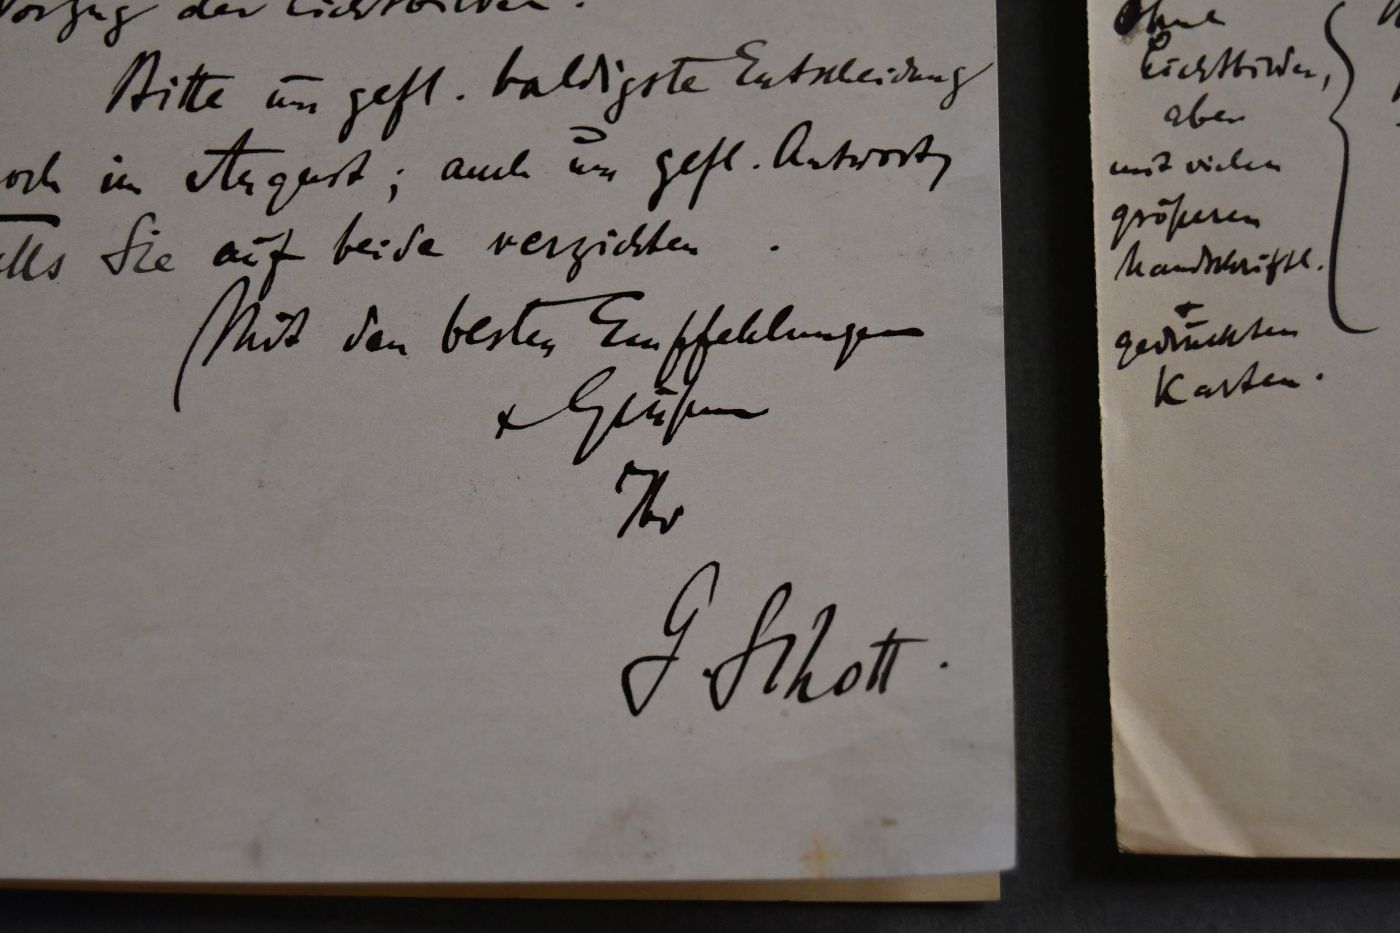 Vorzug der Lichtbilder.
Bitte um gefl. baldigste Entscheidung
noch im August; auch um gefl. Antwort,
falls Sie auf beide verzichten.
Mit den besten Empfehlungen
+ Grüßen
Ihr
G. Schott.
Ohne
Lichtbilder,
aber
mit vielen
größeren
handschriftl.
+
gedruckten
Karten.